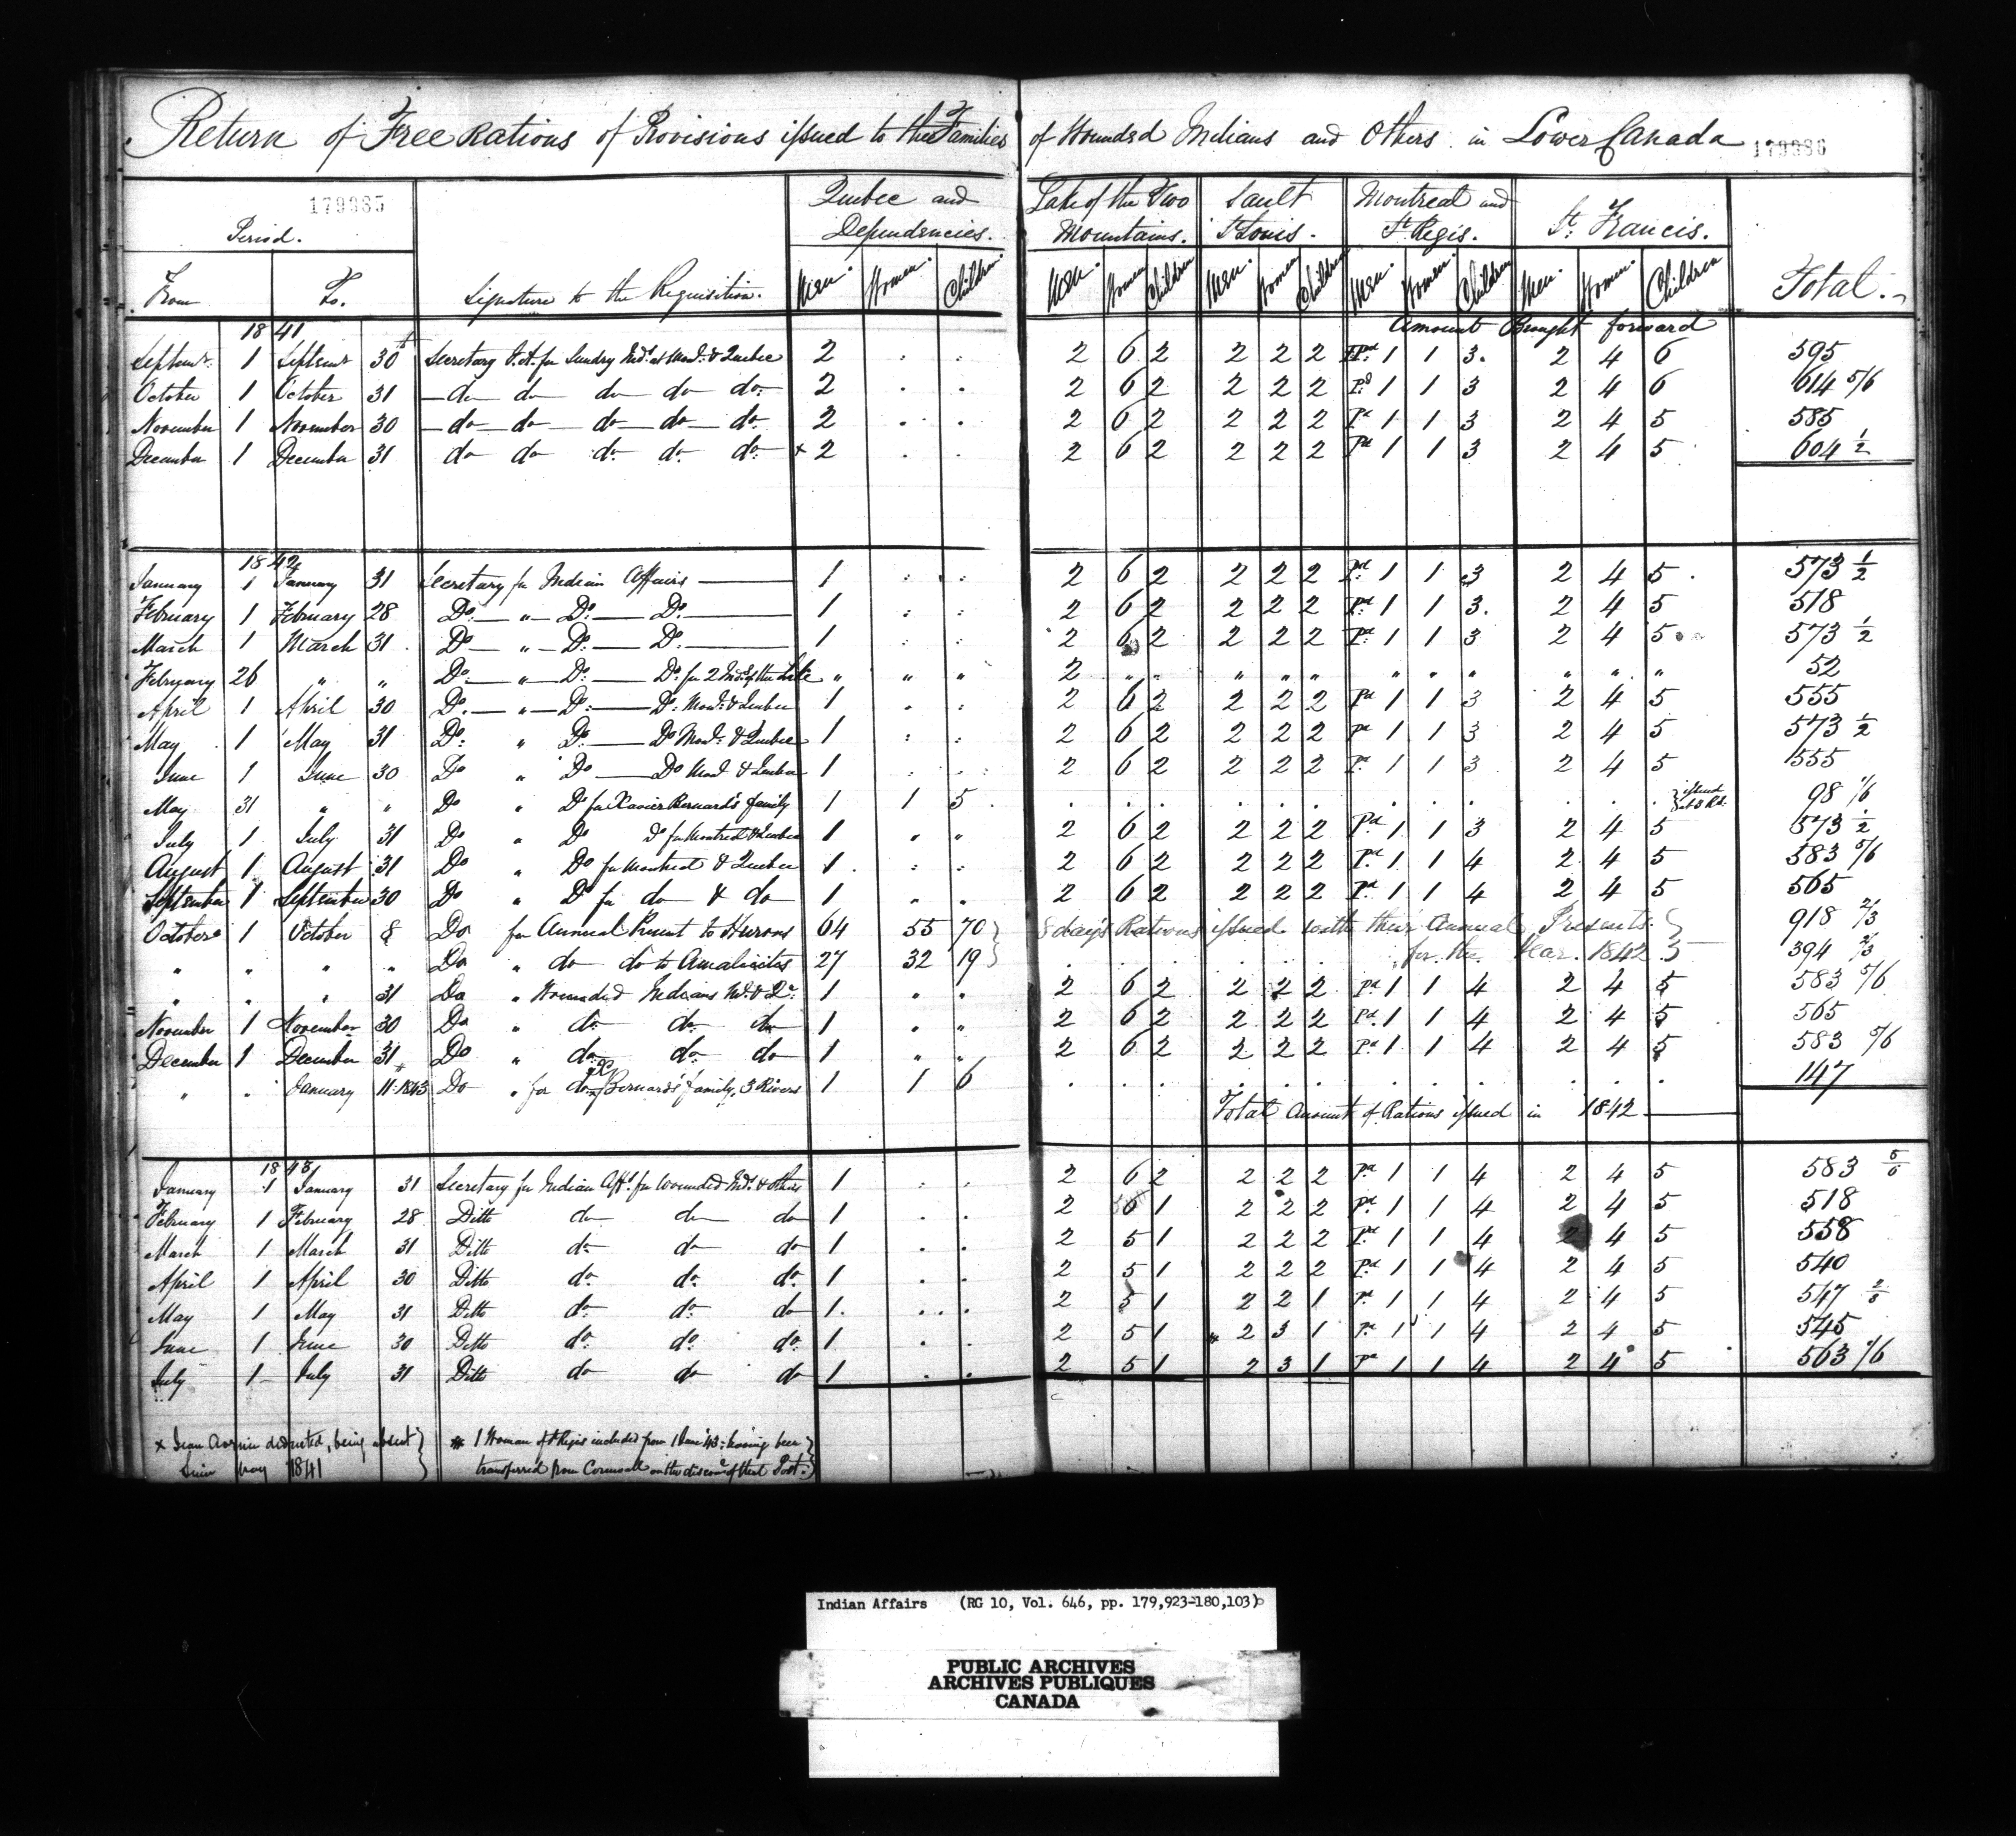 Return of Free Rations of Provisions issued to the Families of Wounded Indians and Others in Lower Canada
179985 179986
Period. Signature to the Requisition. Quebec and Dependencies. Lake of the Two Mountains. Sault St Louis. Montreal and St Regis. St Francis. Total.
From To. Men. Women. Children. Men. Women Children Men. Women Children Men. Women. Children Men. Women. Children
1841 Amount Brought forward
Septemr 1 Septemr 30 Secretary I.A. for Sundry Inds at Monl & Quebec 2 . . 2 6 2 2 2 2 Pd 1 1 3. 2 4 6 595
October 1 October 31 do do do do do 2 . . 2 6 2 2 2 2 Pd 1 1 3 2 4 6 614 5/6
November 1 November 30 do do do do do 2 . . 2 6 2 2 2 2 Pd 1 1 3 2 4 5 585
December 1 December 31 do do do do do x 2 . . 2 6 2 2 2 2 Pd 1 1 3 2 4 5 604 1/2
1842
January 1 January 31 Secretary for Indian Affairs 1 . . 2 6 2 2 2 2 Pd 1 1 3 2 4 5 573 1/2
February 1 February 28 Do " Do Do 1 . . 2 6 2 2 2 2 Pd 1 1 3. 2 4 5 518
March 1 March 31 Do " Do Do 1 . . 2 6 2 2 2 2 Pd 1 1 3 2 4 5 573 1/2
February 26 " " Do " Do Do for 2 Inds of the Lake " " " 2 " " " " " " " " " " " 52
April 1 April 30 Do " Do Do Monl & Quebec 1 . . 2 6 2 2 2 2 Pd 1 1 3 2 4 5 555
May 1 May 31 Do " Do Do Monl & Quebec 1 . . 2 6 2 2 2 2 Pd 1 1 3 2 4 5 573 1/2
June 1 June 30 Do " Do Do Monl & Quebec 1 . . 2 6 2 2 2 2 Pd 1 1 3 2 4 5 555
May 31 " " Do " Do for Xavier Bernard's family 1 1 5 . . . . . . . . . . . issued at 3 Rs. 98 1/6
July 1 July 31 Do " Do Do for Montreal & Quebec 1 " " 2 6 2 2 2 2 Pd 1 1 3 2 4 5 573 1/2
August 1 August 31 Do " Do for Montreal & Quebec 1 . . 2 6 2 2 2 2 Pd 1 1 4 2 4 5 583 5/6
September 1 September 30 Do " Do for do & do 1 " " 2 6 2 2 2 2 Pd 1 1 4 2 4 5 565
October 1 October 8 Do for Annual Present to Hurons 64 55 70 8 day's Rations issued with their Annual Presents 918 2/3
" " " " Do " do do to Amalicites 27 32 19 for the Year 1842 394 2/3
" " " 31 Do " Wounded Indians Ml & Qc 1 " " 2 6 2 2 2 2 Pd 1 1 4 2 4 5 583 5/6
November 1 November 30 Do " do do do 1 " " 2 6 2 2 2 2 Pd 1 1 4 2 4 5 565
December 1 December 31 Do " do do do 1 " " 2 6 2 2 2 2 Pd 1 1 4 2 4 5 583 5/6
" " January 11 1843 Do " for do Bernard's family, 3 Rivers 1 1 6 . . . . . . . . . . . 147
Total Amount of Rations issued in 1842
1843
January 1 January 31 Secretary for Indian Affs for Wounded Inds & others 1 . . 2 6 2 2 2 2 Pd 1 1 4 2 4 5 583 5/6
February 1 February 28 Ditto do do do 1 . . 2 6 1 2 2 2 Pd 1 1 4 2 4 5 518
March 1 March 31 Ditto do do do 1 . . 2 5 1 2 2 2 Pd 1 1 4 2 4 5 558
April 1 April 30 Ditto do do do 1 . . 2 5 1 2 2 2 Pd 1 1 4 2 4 5 540
May 1 May 31 Ditto do do do 1 . . 2 5 1 2 2 1 Pd 1 1 4 2 4 5 547
June 1 June 30 Ditto do do do 1 . . 2 5 1 2 3 1 Pd 1 1 4 2 4 5 545
July 1 July 31 Ditto do do do 1 . . 2 5 1 2 3 1 Pd 1 1 4 2 4 5 563 1/6
x Jean deducted, being absent since May 1841
* 1 Woman of St Regis included from 1 June '43; having been
transferred from Cornwall on the disconce of that Post.
Indian Affairs (RG 10, Vol. 646, pp. 179,923-180,103)
PUBLIC ARCHIVES
ARCHIVES PUBLIQUES
CANADA